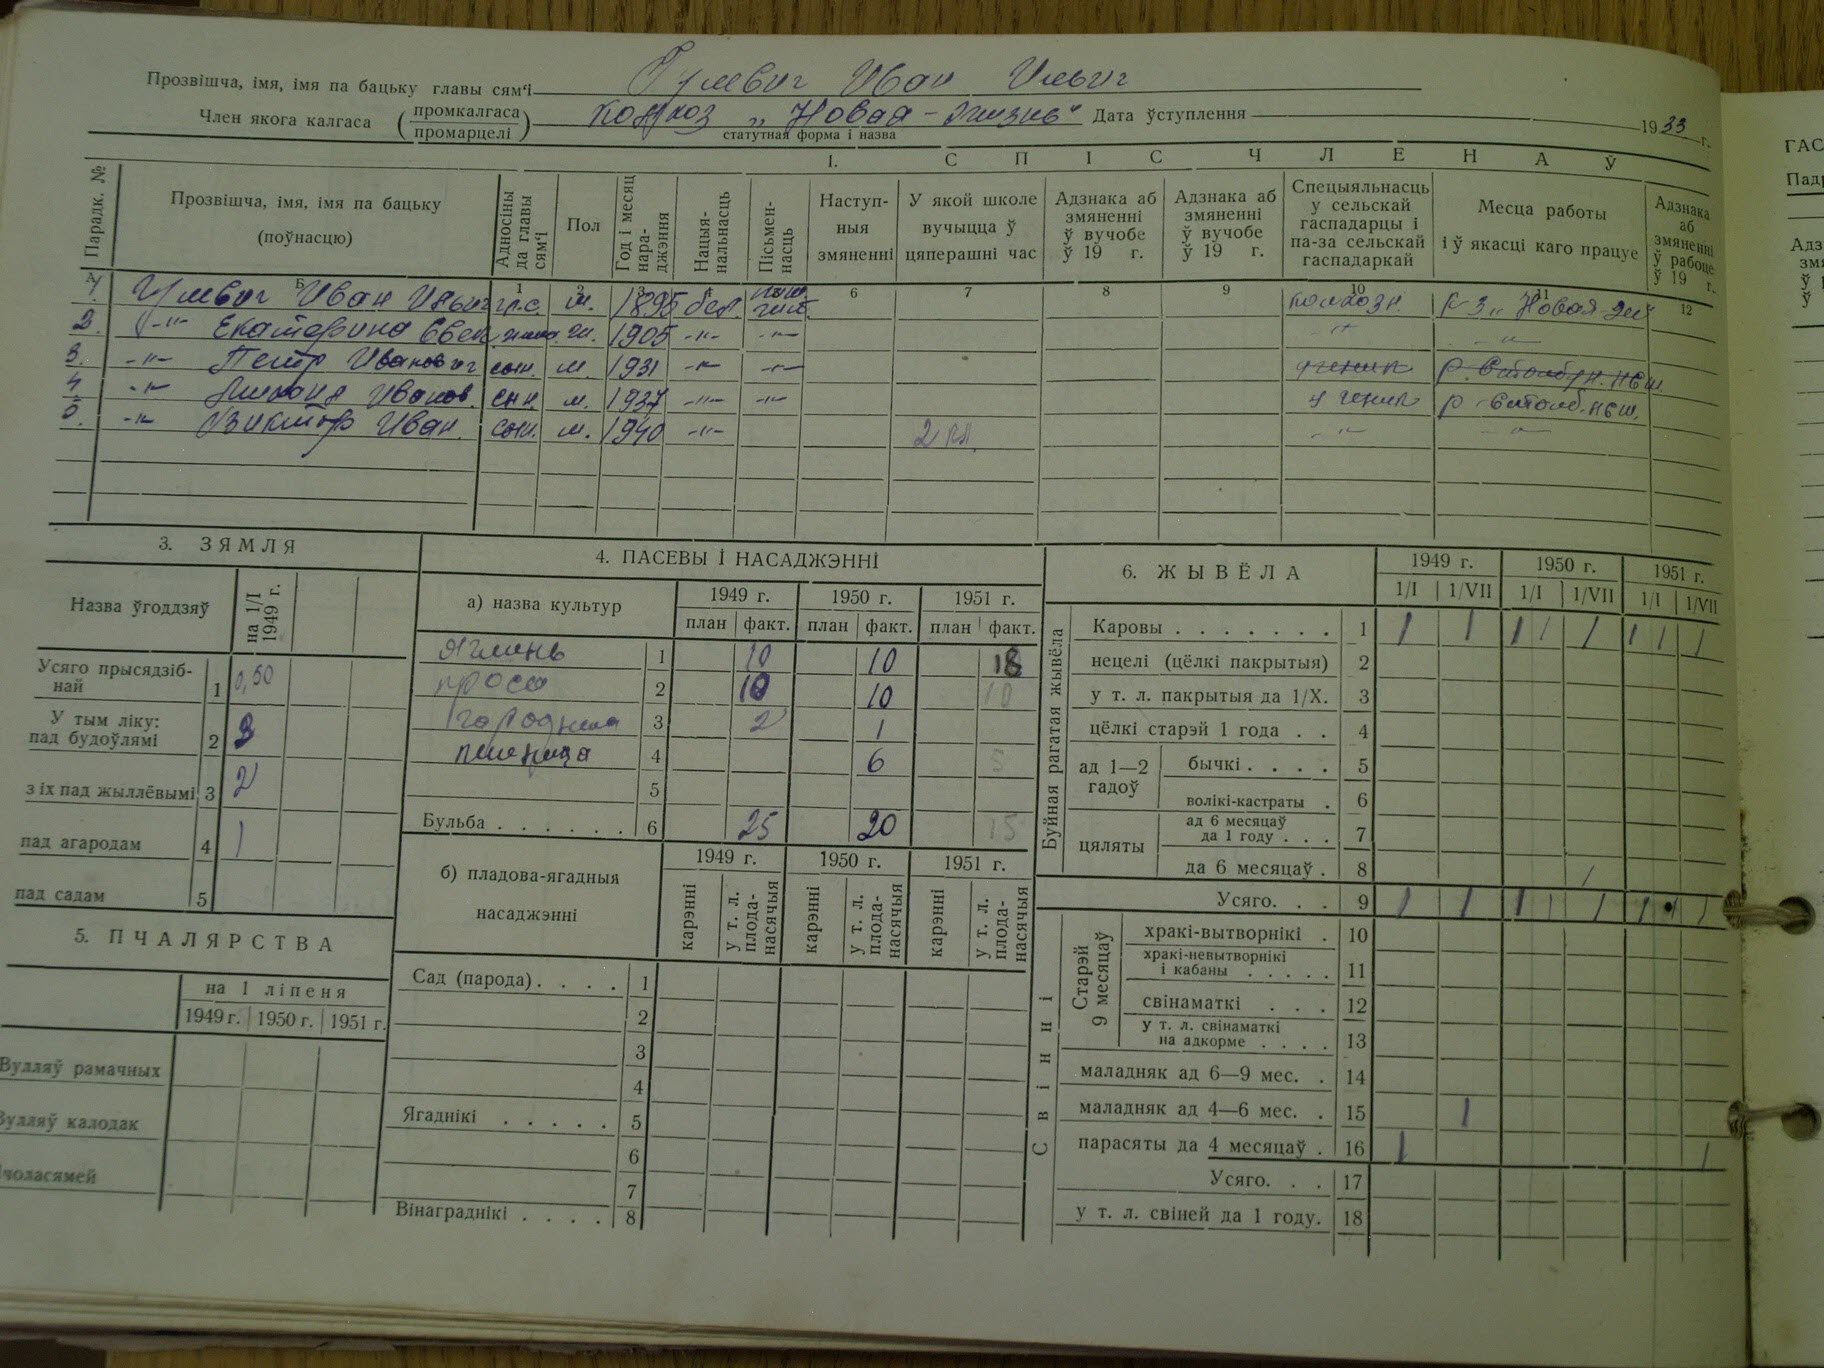 Прозвішча, імя, імя па бацьку главы сям'і Гулевич Иван Ильич
Член якога калгаса (промкалгаса промарцелі) Колхоз „Новая-Жизнь" Дата ўступлення 1933 г.
статутная форма і назва
1. СПІС ЧЛЕНАЎ
Парадк. № Прозвішча, імя, імя па бацьку (поўнасцю) Адносіны да главы сям'і Пол Год і месяц нараджэння Нацыянальнасць Пісьменнасць Наступныя змяненні У якой школе вучыцца ў цяперашні час Адзнака аб змяненні ў вучобе ў 19 г. Адзнака аб змяненні ў вучобе ў 19 г. Спецыяльнасць у сельскай гаспадарцы і па-за сельскай гаспадаркай Месца работы і ў якасці каго працуе Адзнака аб змяненні ў рабоце ў 19 г.
А Б 1 2 3 4 6 7 8 9 10 11 12
1. Гулевич Иван Ильич гл.с. м. 1895 бел. колхозн. к-з „Новая-
2. -"- Екатерина жена ж. 1905 -"- -"- -"- -"-
3. -"- Петр Иванович сын. м. 1931 -"- -"- ученик
4. -"- Иванов. сын. м. 1937 -"- -"- ученик
5. -"- Виктор Иван. сын. м. 1940 -"- 2 кл. -"- -"-
3. ЗЯМЛЯ
Назва ўгоддзяў на 1/I 1949 г.
Усяго прысядзібнай 1 0,50
У тым ліку: пад будоўлямі 2 3
з іх пад жыллёвымі 3 2
пад агародам 4 1
пад садам 5
5. ПЧАЛЯРСТВА
на 1 ліпеня
1949 г. 1950 г. 1951 г.
Вулляў рамачных
Вулляў калодак
Пчоласямей
4. ПАСЕВЫ І НАСАДЖЭННІ
а) назва культур 1949 г. 1950 г. 1951 г.
план факт. план факт. план факт.
Ячмень 1 10 10 18
просо 2 10 10 10
3 2 1
пшеница 4 6
5
Бульба 6 25 20 15
б) пладова-ягадныя насаджэнні 1949 г. 1950 г. 1951 г.
карэнні у т. л. плоданасячыя карэнні у т. л. плоданасячыя карэнні у т. л. плоданасячыя
Сад (парода) 1
2
3
4
Ягаднікі 5
6
7
Вінаграднікі 8
6. ЖЫВЁЛА 1949 г. 1950 г. 1951 г.
1/I 1/VII 1/I 1/VII 1/I 1/VII
Буйная рагатая жывёла
Каровы 1 1 1 1 1 1 1 1 1
нецелі (цёлкі пакрытыя) 2
у т. л. пакрытыя да 1/X. 3
цёлкі старэй 1 года 4
ад 1—2 гадоў бычкі 5
волікі-кастраты 6
цяляты ад 6 месяцаў да 1 году 7
да 6 месяцаў 8 1
Усяго 9 1 1 1 1 1 1 1
Свінні
Старэй 9 месяцаў
хракі-вытворнікі 10
хракі-невытворнікі і кабаны 11
свінаматкі 12
у т. л. свінаматкі на адкорме 13
маладняк ад 6—9 мес. 14
маладняк ад 4—6 мес. 15 1
парасяты да 4 месяцаў 16 1 1
Усяго 17
у т. л. свіней да 1 году. 18
ГАС
Падр
Адз